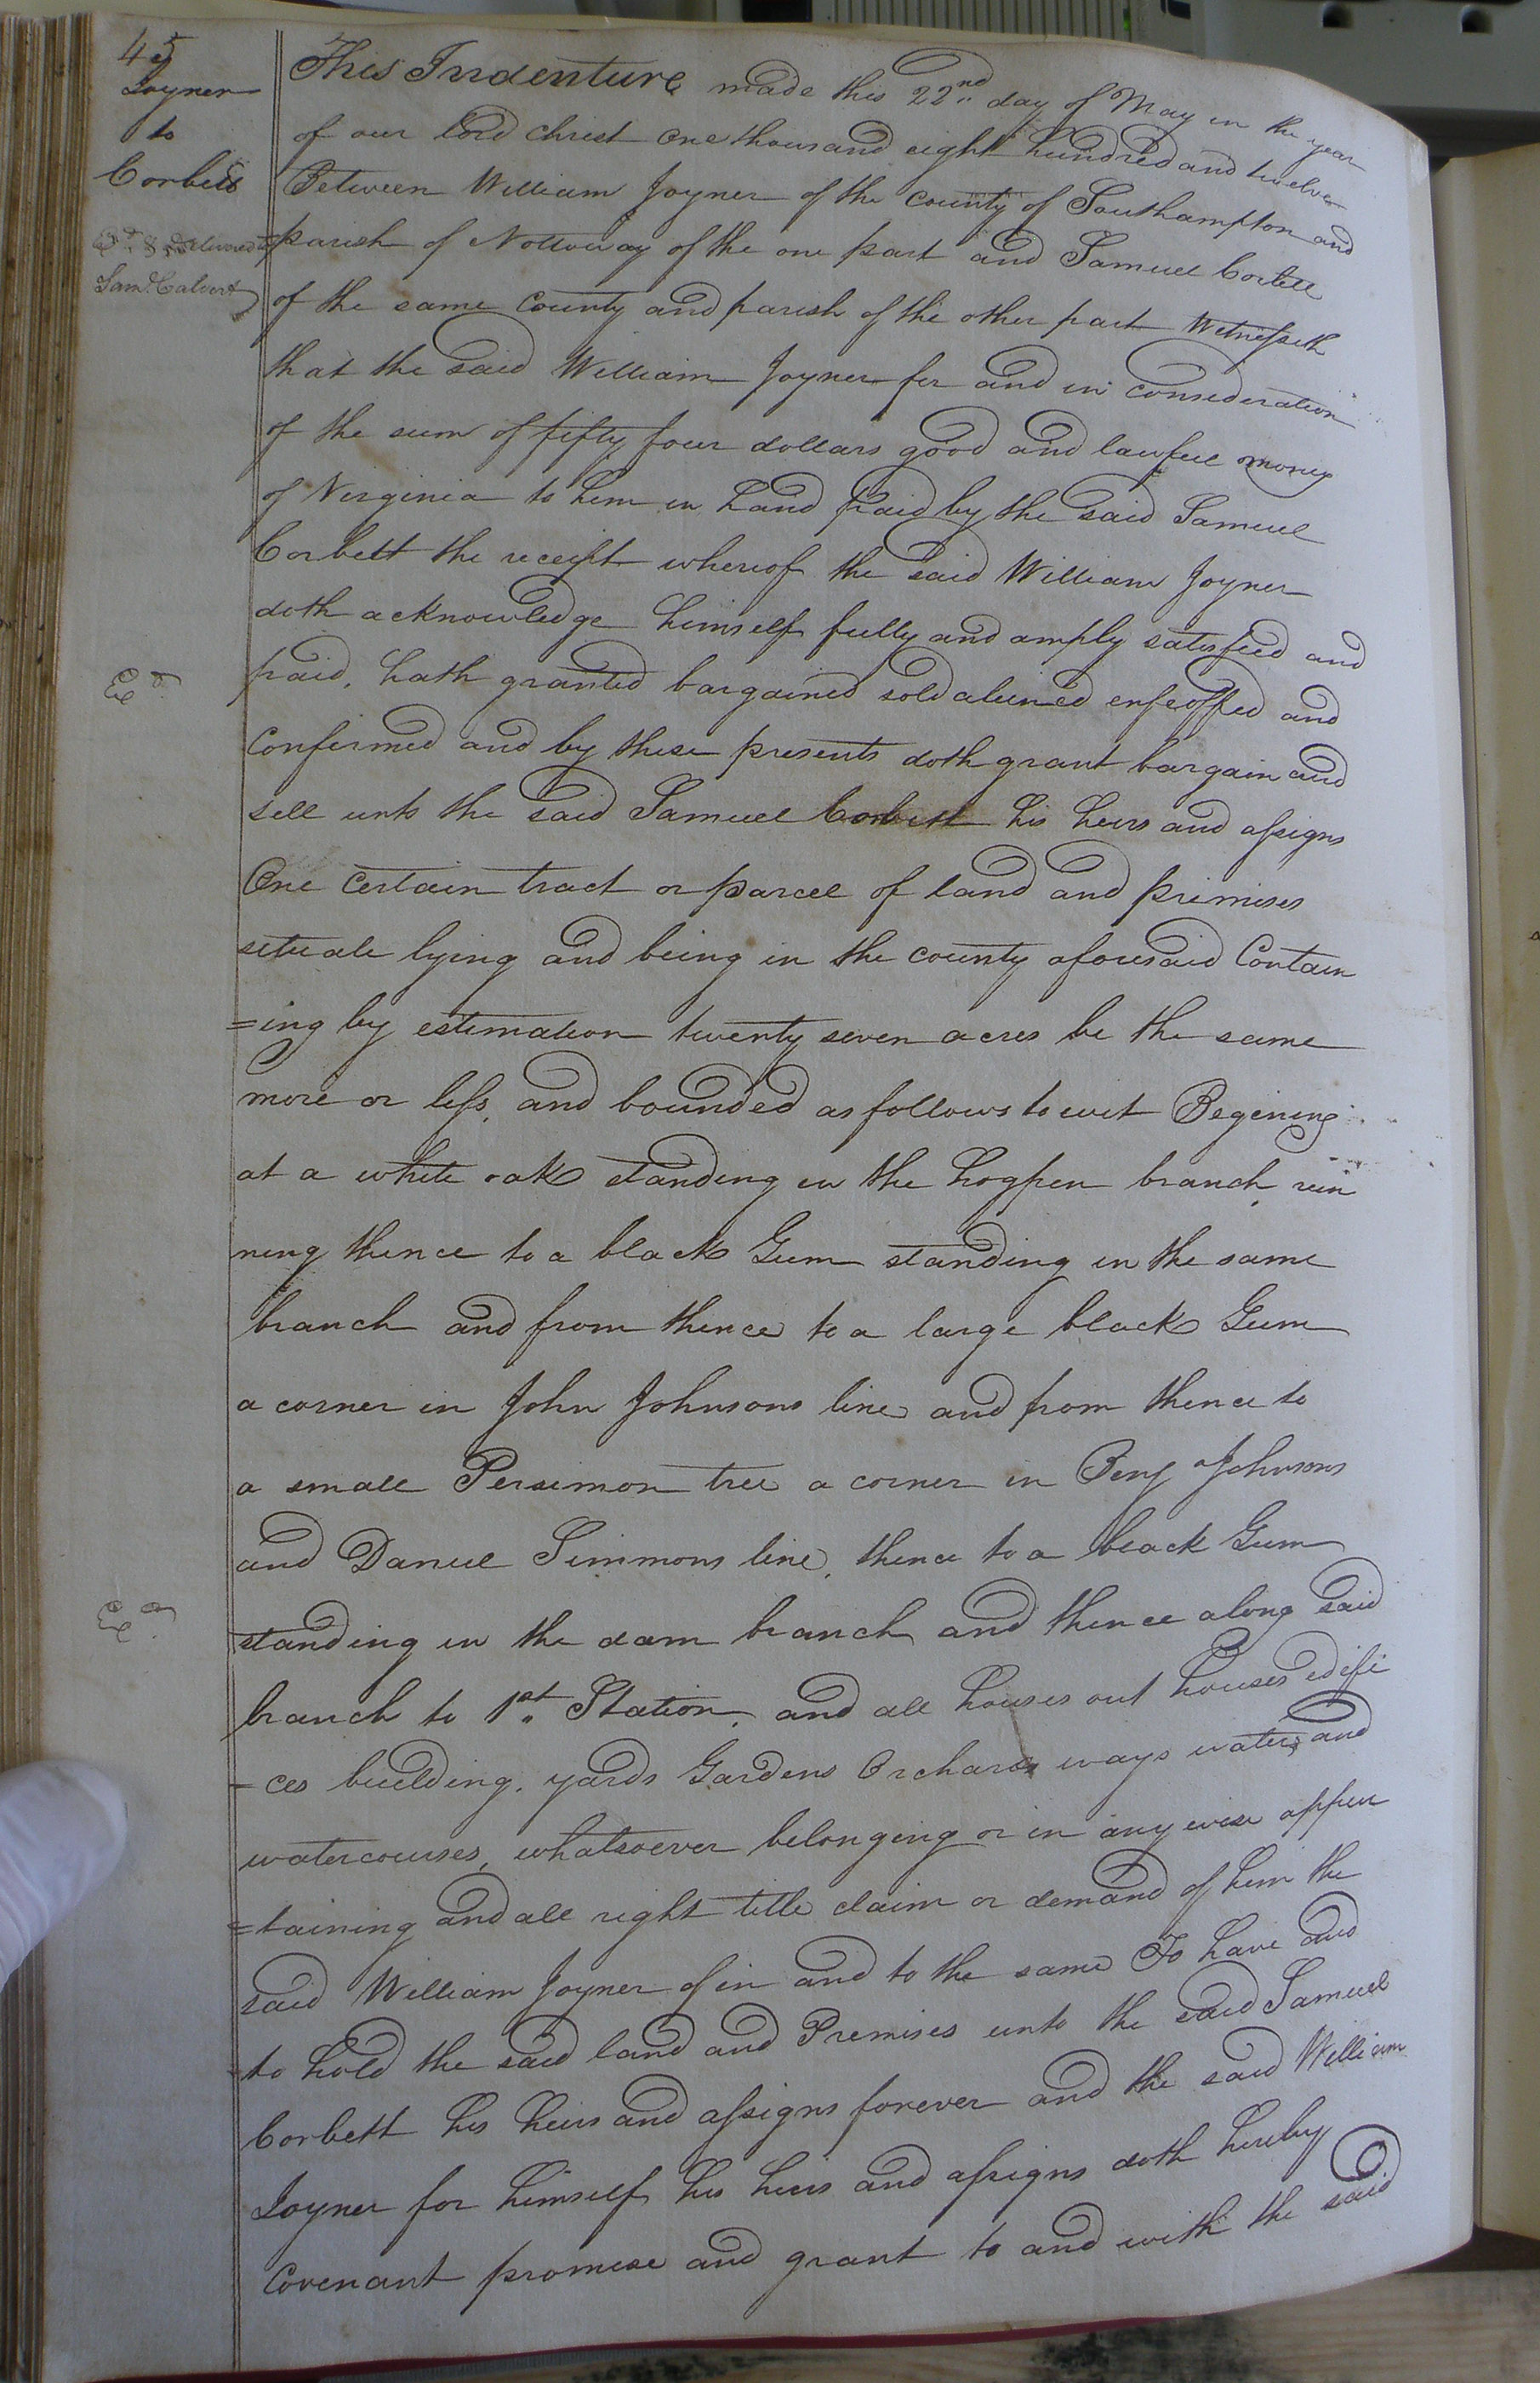 45
Joyner
to
Corbett
Exd & Delivered to
Saml. Calvert
This Indenture made this 22nd day of May in the year
of our lord christ one thousand eight hundred and twelve
Between William Joyner of the county of Southampton and
parish of Nottoway of the one part and Samuel Corbett
of the same County and parish of the other part Witnesseth
that the said William Joyner for and in consideration
of the sum of fifty four dollars good and lawfull money
of Virginia to him in hand paid by the said Samuel
Corbett the receipt whereof the said William Joyner
doth acknowledge himself fully and amply satisfied and
Exd
paid, hath granted bargained sold aliened enfeoffed and
Confirmed and by these presents doth grant bargain and
sell unto the said Samuel Corbett his heirs and assigns
One Certain tract or parcel of land and premises
situate lying and being in the county aforesaid Contain
=ing by estimation twenty seven acres be the same
more or less, and bounded as follows to wit Begining
at a white oak standing in the hogpen branch, run
ning thence to a black Gum standing in the same
branch and from thence to a large black Gum
a corner in John Johnsons line and from thence to
a small Persimon tree a corner in Benj Johnsons
and Daniel Simmons line, thence to a black Gum
Exd
standing in the dam branch and thence along said
branch to 1st Station, and all houses out houses edifi
-ces building, yards Gardens Orchards ways waters and
watercourses, whatsoever belonging or in any wise apper
=taining and all right title claim or demand of him the
said William Joyner of in and to the same To have and
to hold the said land and Premises unto the said Samuel
Corbett his heirs and assigns forever and the said William
Joyner for himself his heirs and assigns doth hereby
Covenant promise and grant to and with the said